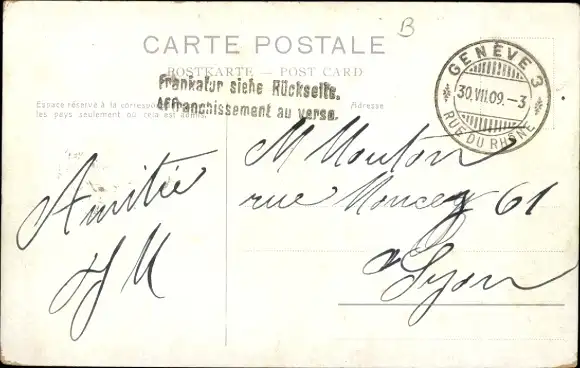 B
CARTE POSTALE
POSTKARTE — POST CARD
Frankatur siehe Rückseite.
Affranchissement au verso.
Espace réservé à la correspondance
les pays seulement où cela est admis.
Adresse
GENÈVE 3
30.VII.09.-3
RUE DU RHÔNE
M Mouton
rue Moncey 61
à Lyon
Amitié